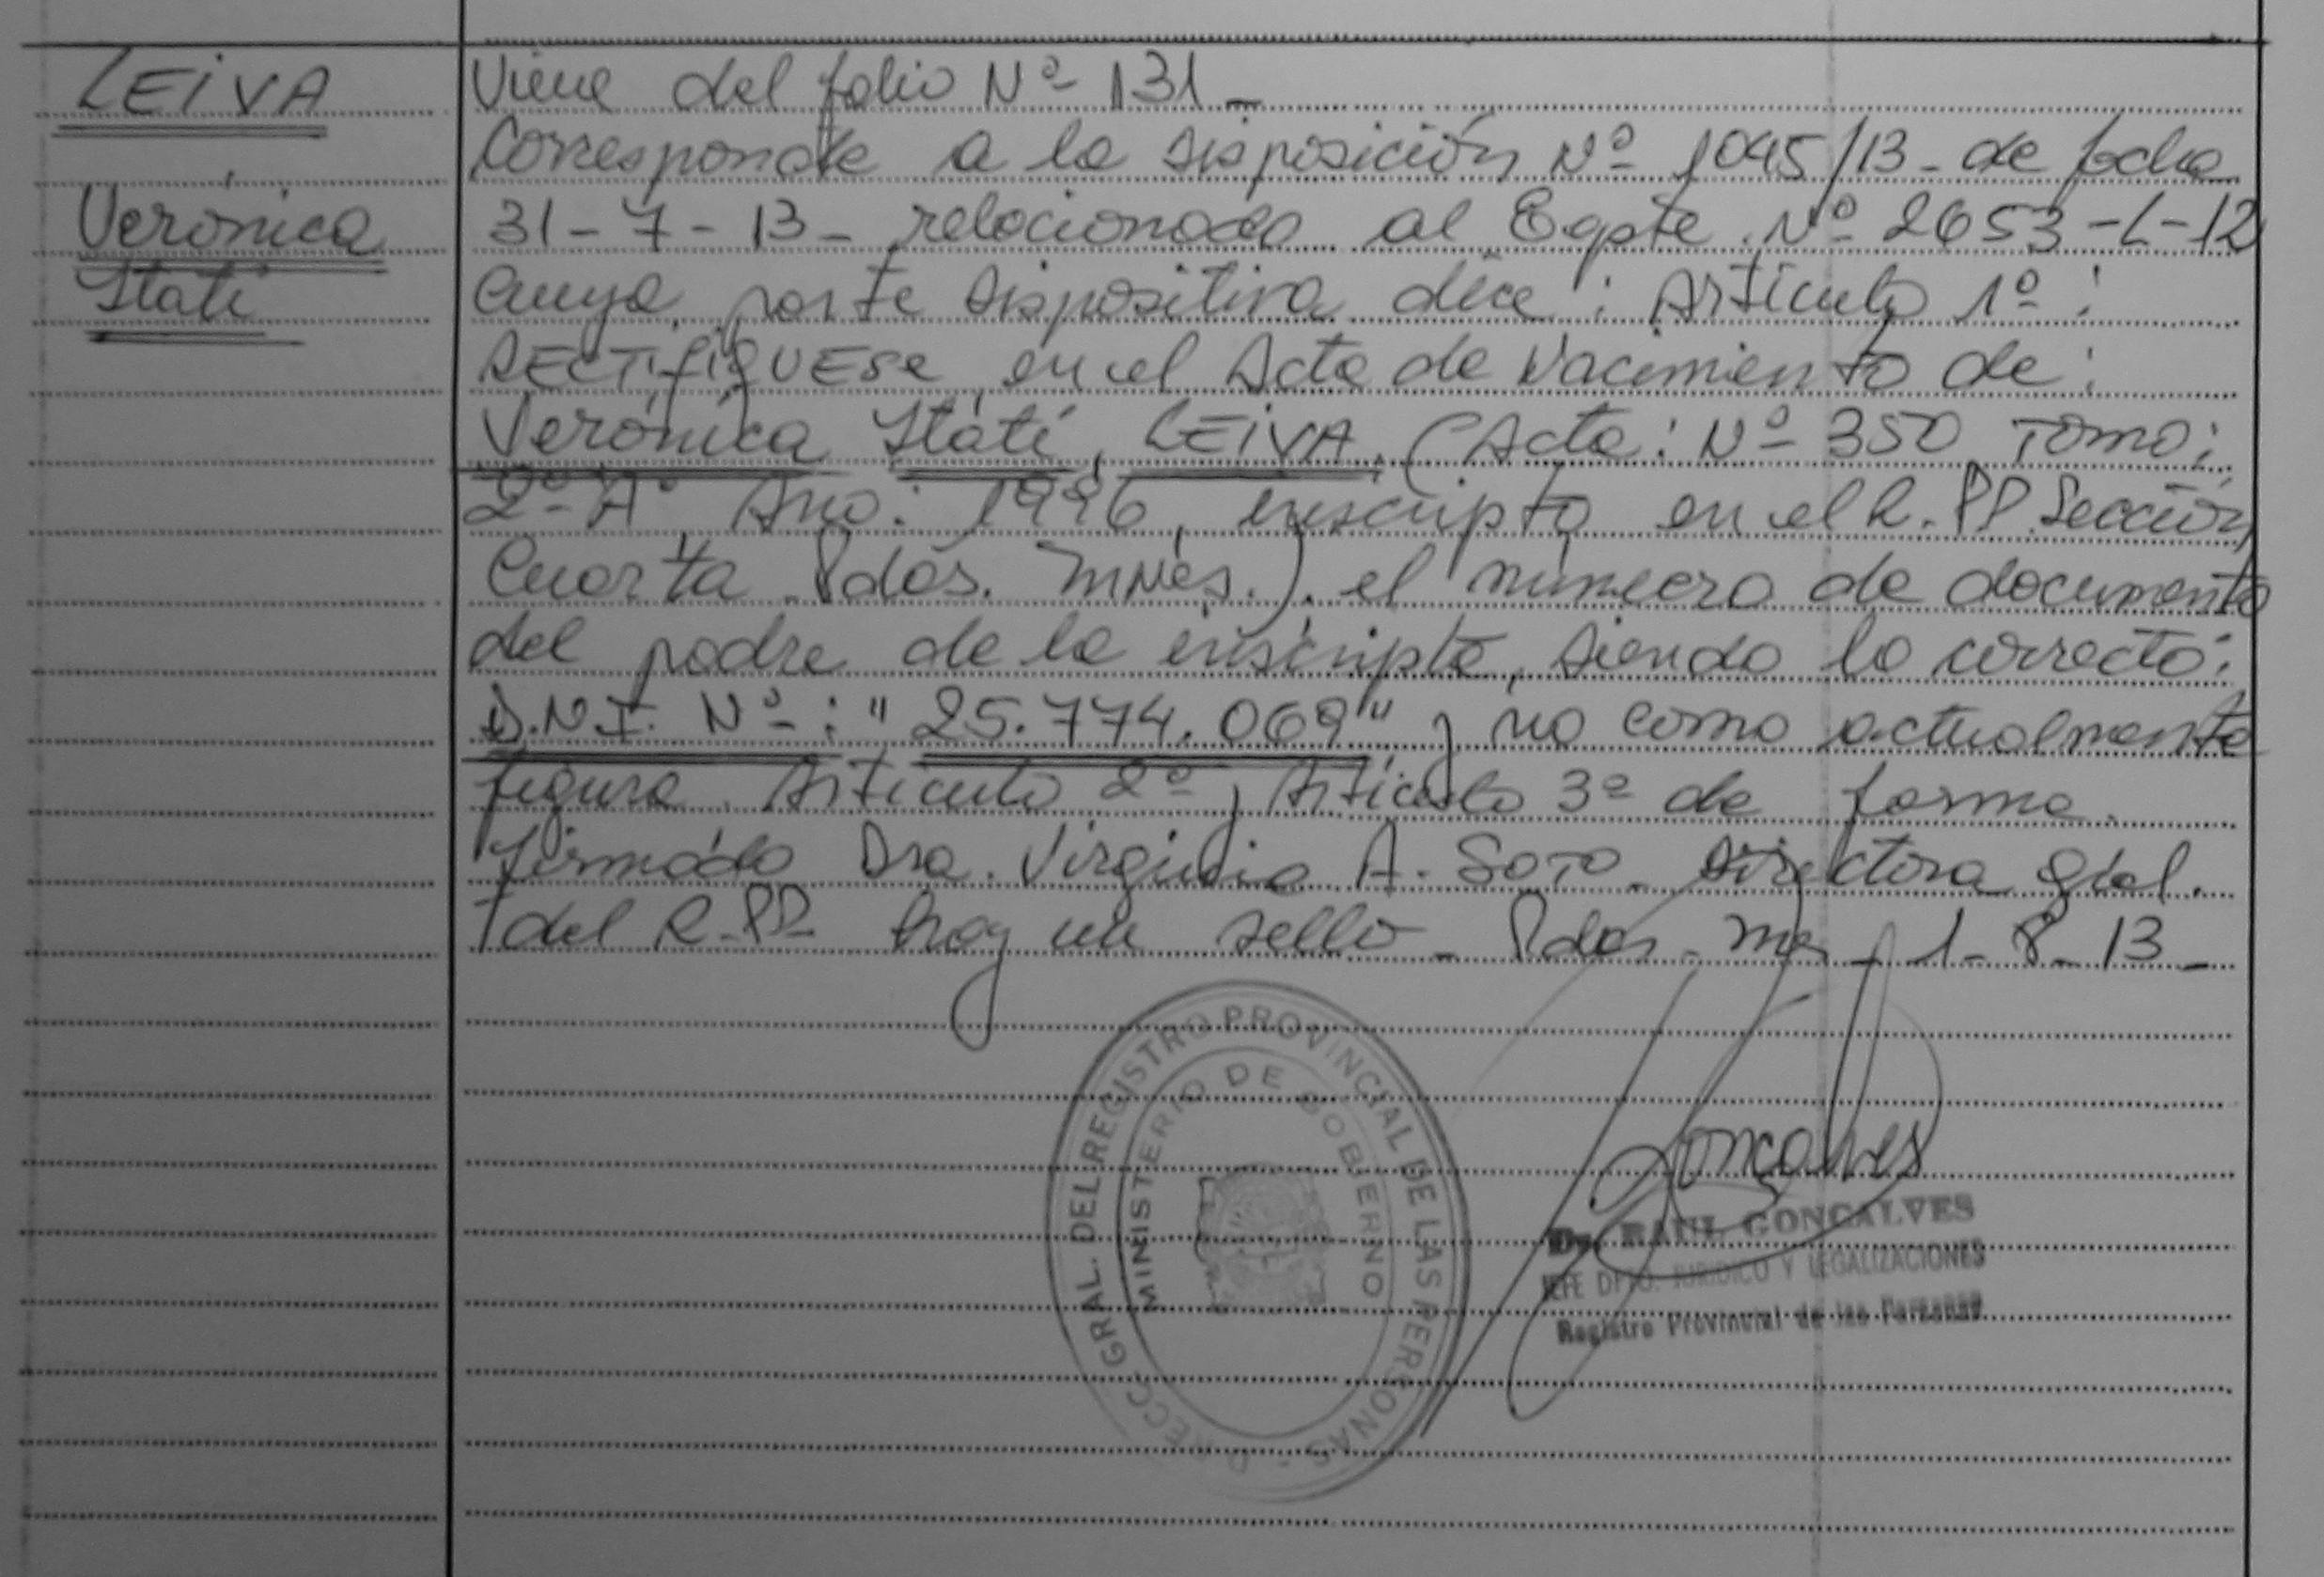 LEIVA
Verónica
Stati
Viene del folio Nº 131 -
Corresponde a la disposición Nº 1045/13 - de fecha
31 - 7 - 13 - relacionada al Expte. Nº 2653 - L - 12
cuya parte dispositiva dice: Artículo 1º:
RECTIFIQUESE en el Acta de Nacimiento de:
Verónica Stati LEIVA (Acta: Nº 350 Tomo:
2º A Año: 1996, inscripta en el R.PP. Sección
Cuarta Pdas. Mnes.). el número de documento
del padre de la inscripta, siendo lo correcto:
D.N.I. Nº: "25.774.069" y no como actualmente
figura. Artículo 2º y Artículo 3º de forma.
Firmado Dra. Virginia A. Soto - Directora Gral.
del R.PP. hay un sello - Pdas - Mnes - 1 - 8 - 13 -
DIRECC. GRAL. DEL REGISTRO PROVINCIAL DE LAS PERSONAS
MINISTERIO DE GOBIERNO
Goncalves
Dr. RAUL GONCALVES
JEFE DPTO. JURIDICO Y LEGALIZACIONES
Registro Provincial de las Personas